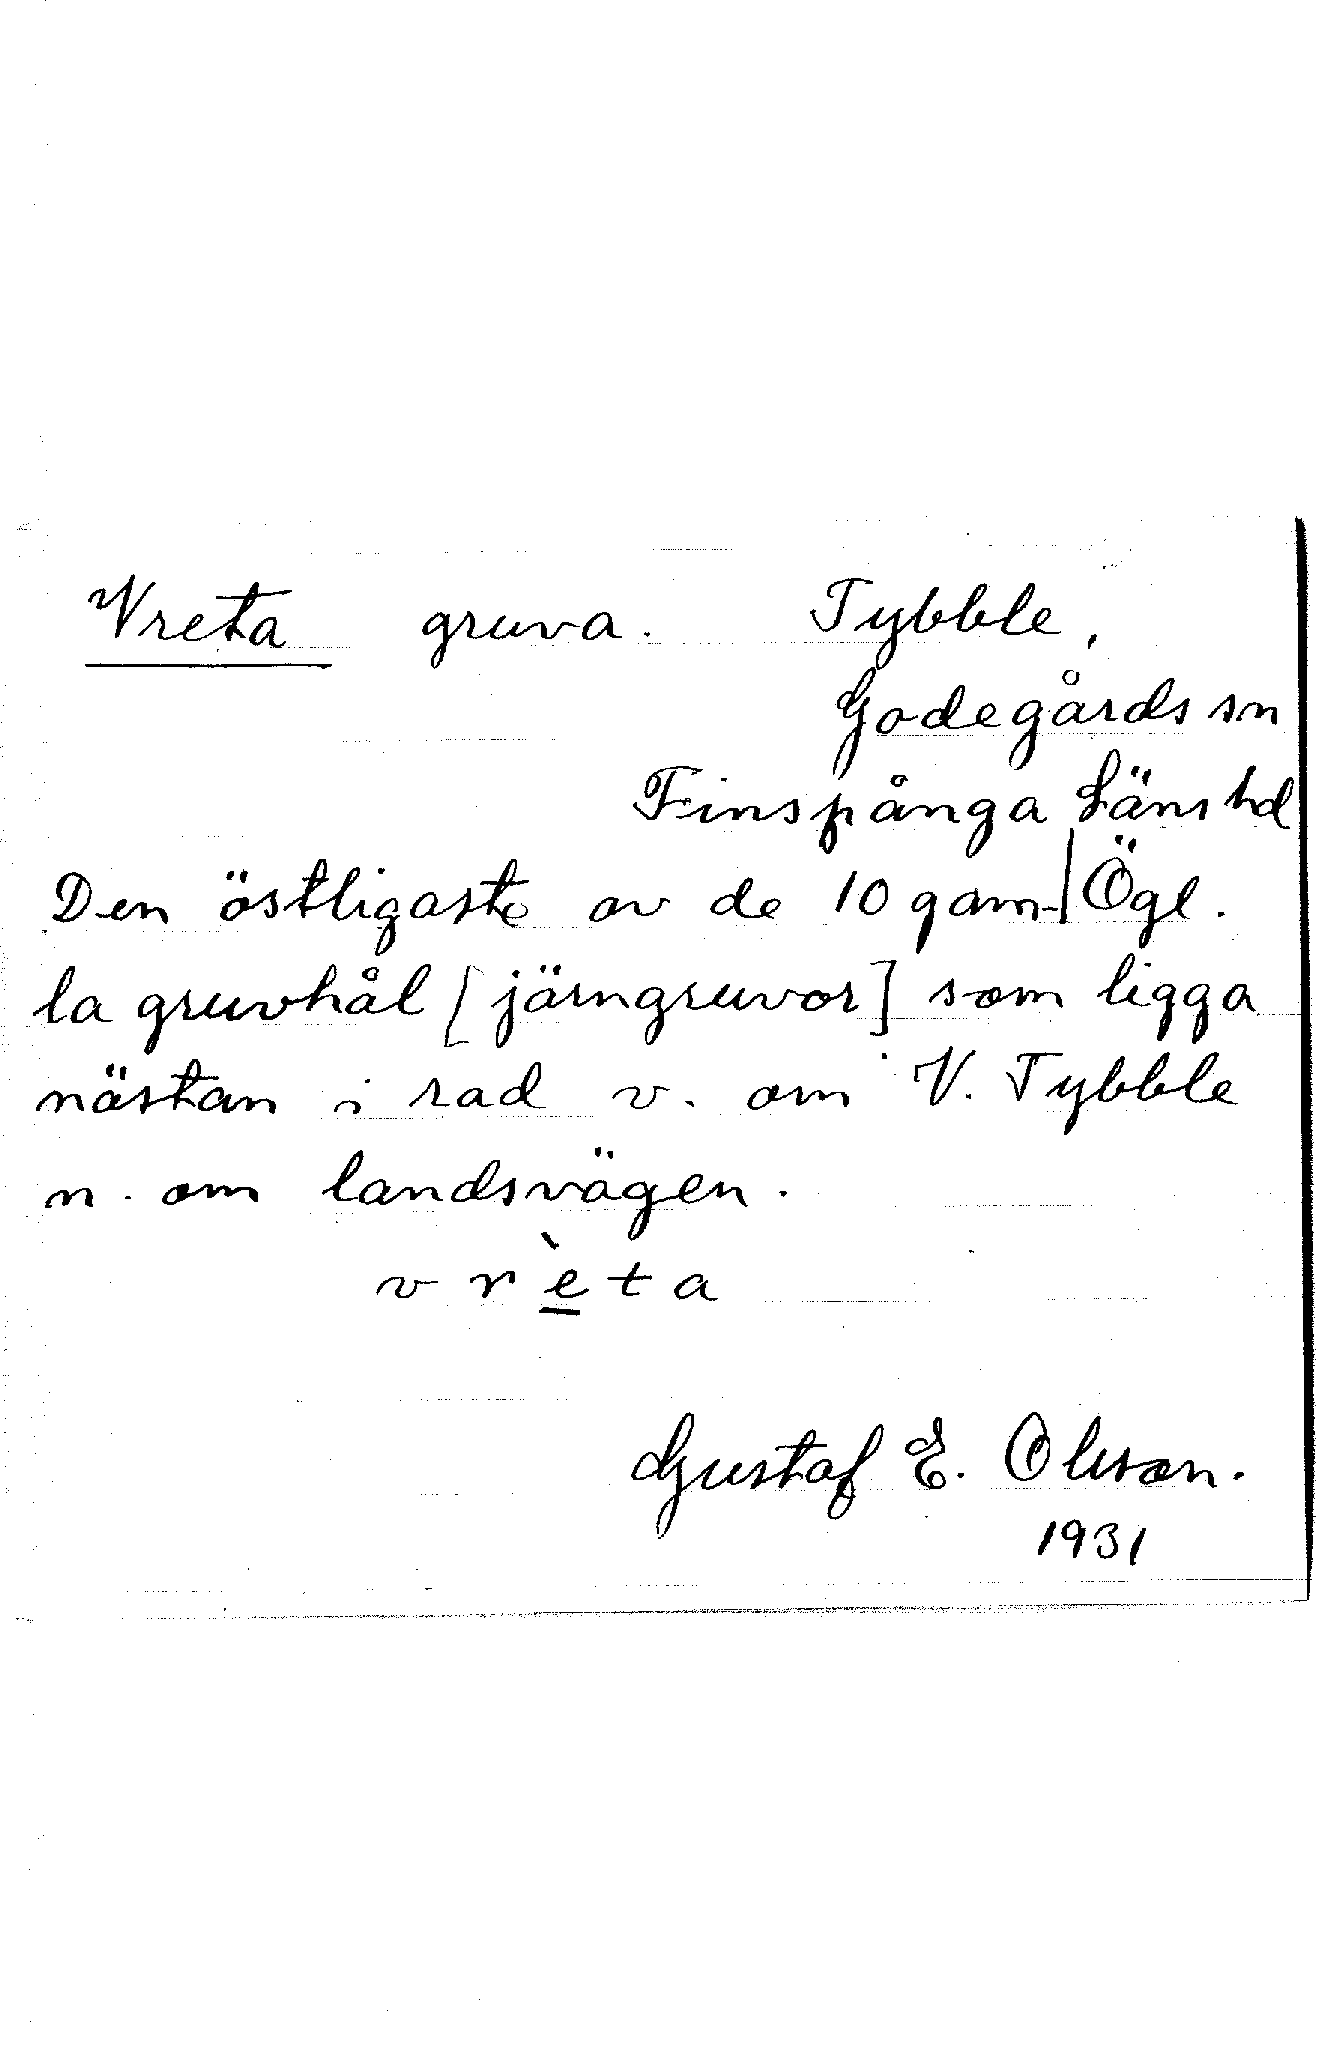 Vreta gruva. Tybble,
Godegårds sn
Finspånga Läns hd
Den östligaste av de 10 gam- Ögl.
la gruvhål [järngruvor] som ligga
nästan i rad v. om V. Tybble
n. om landsvägen.
vrèta
Gustaf E. Olsson.
1931